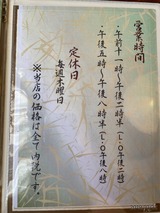 営業時間
・午前十一時～午後二時半（L.O午後二時）
・午後五時～午後八時半（L.O午後八時）
定休日
毎週木曜日
※当店の価格は全て内税です。